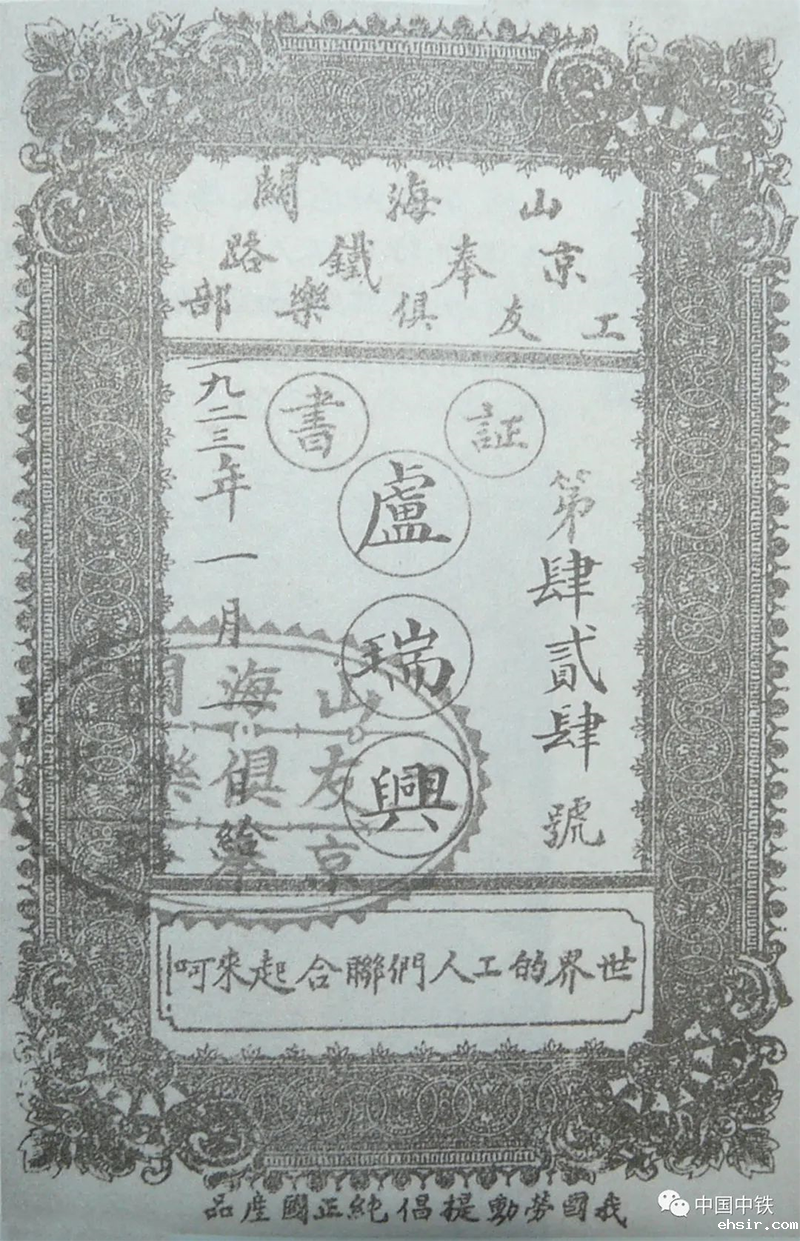 山海關
京奉鐵路
工友俱樂部
証書
第肆貳肆號
盧瑞興
一九二三年一月一 給
山海關
友俱樂
京奉
世界的工人們聯合起來呵
我國勞動提倡純正國産品
中国中铁
ehsir.com